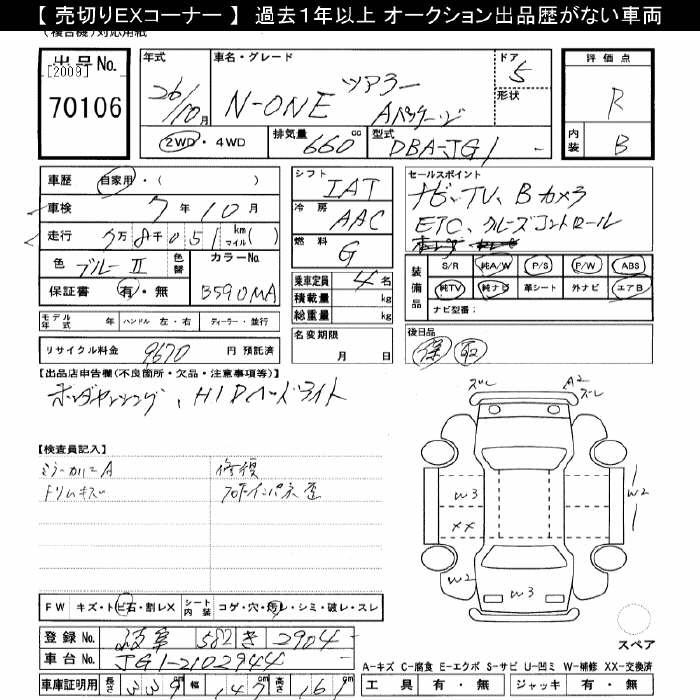 【 売切りEXコーナー 】 過去1年以上 オークション出品歴がない車両
(複合機)対応用紙
出品No.
[2009]
70106
年式
26/10月
車名・グレード
N-ONE ツアラー
Aパッケージ
ドア
5
形状
2WD・4WD
排気量 660 cc
型式 DBA-JG1 -
評価点
R
内装 B
車歴 自家用・( )
車検 7年10月
走行 7万8千051 km マイル( )
色 ブルーⅡ 色替
カラーNo. B590MA
保証書 有・無
シフト IAT
冷房 AAC
燃料 G
乗車定員 4名
積載量 kg
総重量 kg
セールスポイント
ナビ、TV、Bカメラ
ETC、クルーズコントロール
装備品
S/R 純A/W P/S P/W ABS
純TV 純ナビ 革シート 外ナビ エアB
ナビ型番:
モデル年式 年 ハンドル 左・右 ディーラー・並行
リサイクル料金 9670 円 預託済
名変期限 月 日
後日品
保 取
【出品店申告欄(不良箇所・欠品・注意事項等)】
ホンダセンシング、HIDヘッドライト
【検査員記入】
ミラーカバーA
トリムキズ
修復
フロアインパネ歪
ズレ
A2
ズレ
W3
XX
W2
W2
W3
スペア
FW キズ・トビ石・割レX シート内装 コゲ・穴・汚レ・シミ・破レ・スレ
登録No. 582 き 2904
車台No. JG1-2102944
車庫証明用 長さ 339cm 幅 147cm 高さ 161cm
A-キズ C-腐食 E-エクボ S-サビ U-凹ミ W-補修 XX-交換済
工具 有・無 ジャッキ 有・無